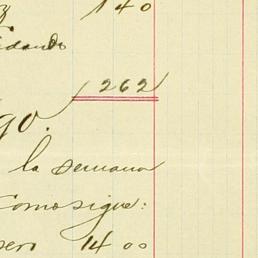 140
dando
262
go.
la semana
como sigue:
sero 14 00